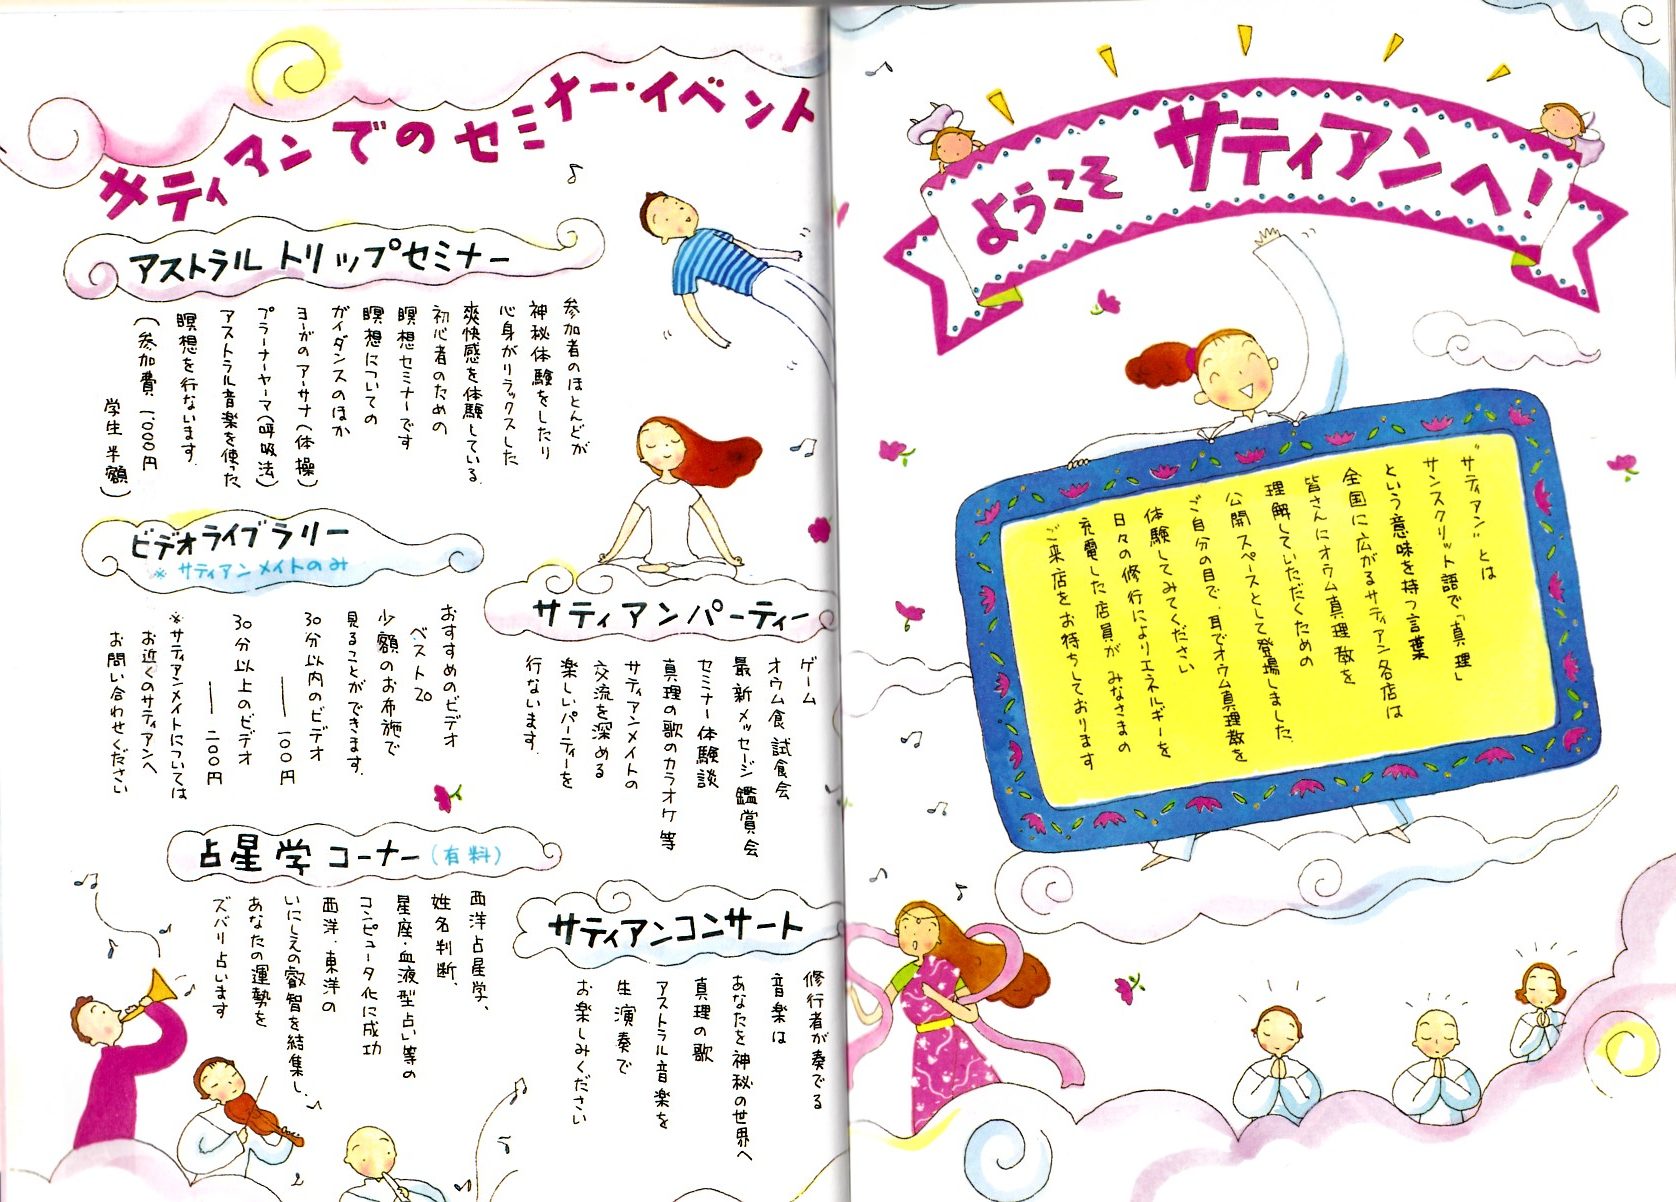 ようこそ サティアンへ!
"サティアン"とは
サンスクリット語で「真理」
という意味を持つ言葉
全国に広がるサティアン各店は
皆さんにオウム真理教を
理解していただくための
公開スペースとして登場しました.
ご自分の目で、耳でオウム真理教を
体験してみてください
日々の修行によりエネルギーを
充電した店員が みなさまの
ご来店をお待ちしております
サティアンでのセミナー・イベント
アストラルトリップセミナー
参加者のほとんどが
神秘体験をしたり
心身がリラックスした
爽快感を体験している.
初心者のための
瞑想セミナーです
瞑想についての
ガイダンスのほか
ヨーガのアーサナ(体操)
プラーナーヤーマ(呼吸法)
アストラル音楽を使った
瞑想を行ないます.
(参加費 一、〇〇〇円
学生半額)
ビデオライブラリー
※サティアンメイトのみ
おすすめのビデオ
ベスト20
少額のお布施で
見ることができます.
30分以内のビデオ
—— 一〇〇円
30分以上のビデオ
—— 二〇〇円
※サティアンメイトについては
お近くのサティアンへ
お問い合わせください
サティアンパーティー
ゲーム
オウム食 試食会
最新メッセージ鑑賞会
セミナー体験談
真理の歌のカラオケ等
サティアンメイトの
交流を深める
楽しいパーティーを
行ないます.
占星学コーナー(有料)
西洋占星学、
姓名判断、
星座・血液型占い等の
コンピュータ化に成功
西洋・東洋の
いにしえの叡智を結集し、
あなたの運勢を
ズバリ占います
サティアンコンサート
修行者が奏でる
音楽は
あなたを神秘の世界へ
真理の歌
アストラル音楽を
生演奏で
お楽しみください